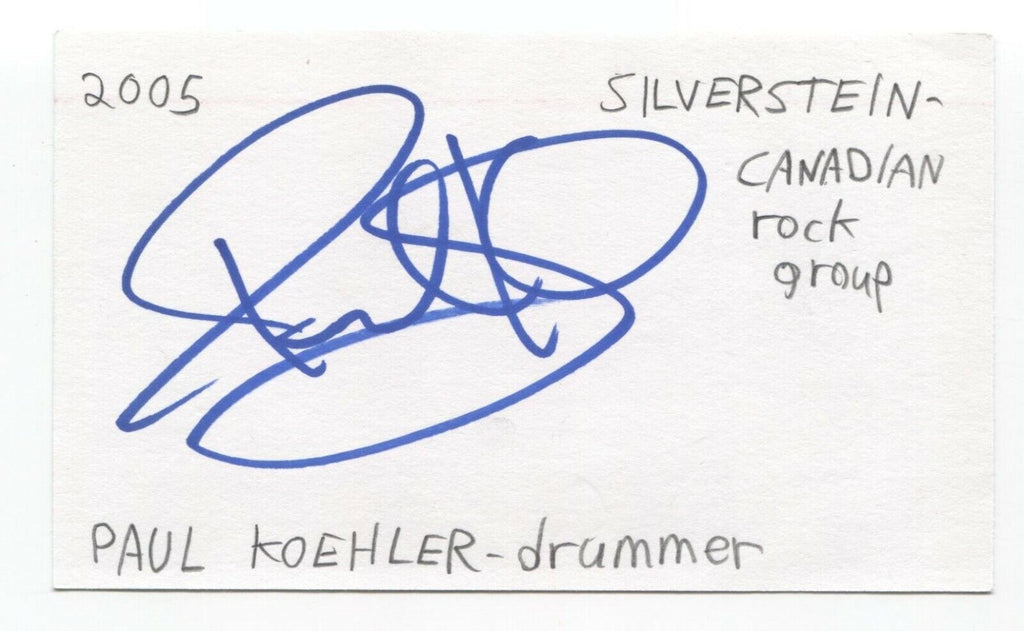 2005
SILVERSTEIN-
CANADIAN
rock
group
PAUL KOEHLER-drummer